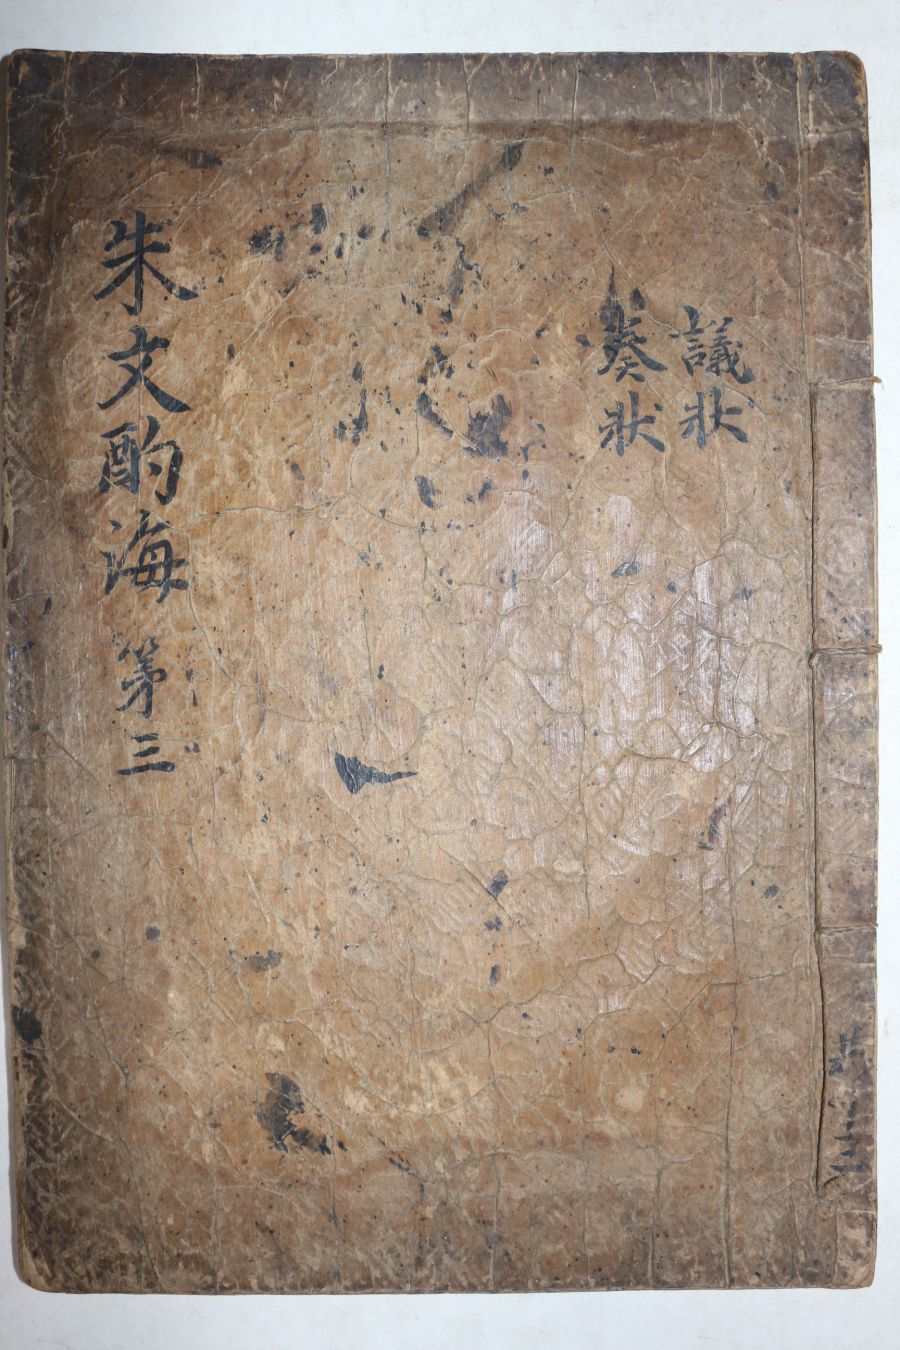 議狀
奏狀
朱文酌海 第三